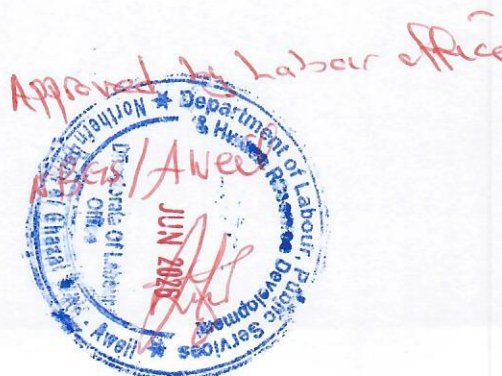 Approved by Labour office
NBGs/Aweil
Department of Labour, Public Services
& Human Resource Development
Northern Bahr el Ghazal State - Aweil
Directorate Of Labour
Office
JUN 2026